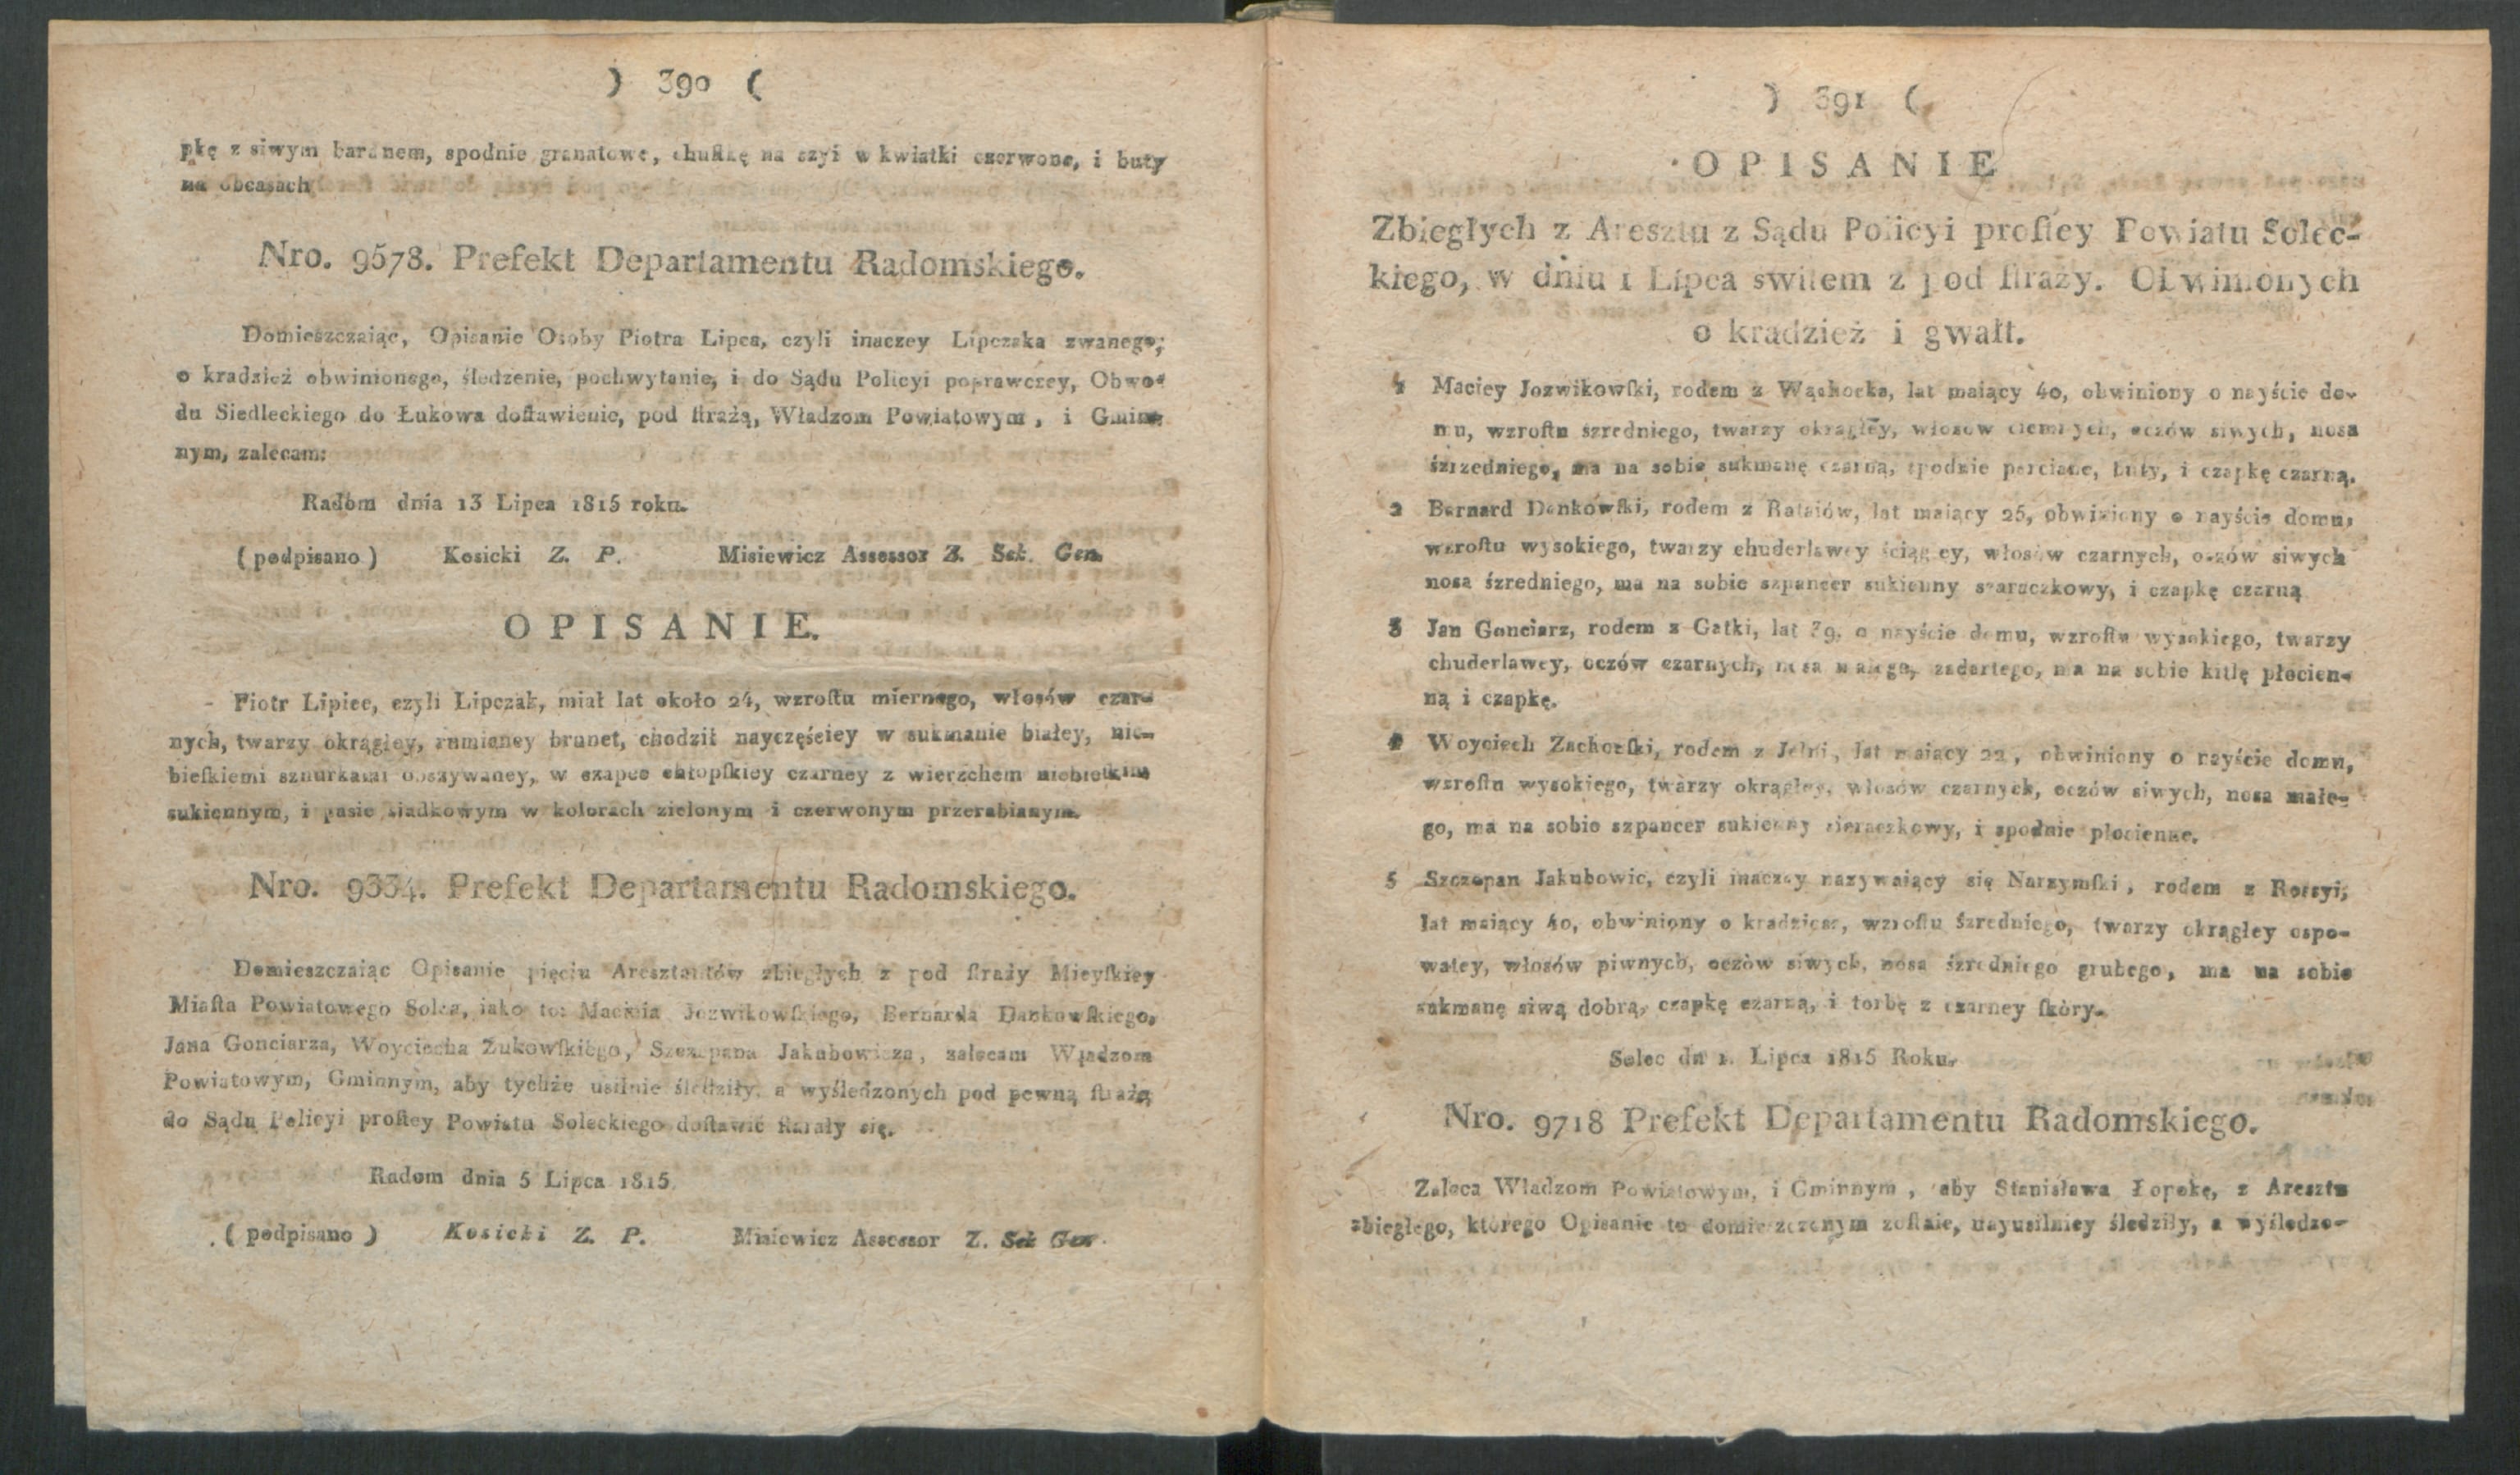 ) 390 (
pkę z siwym baranem, spodnie granatowe, chuſtkę na szyi w kwiatki czerwone, i buty
na obcasach
Nro. 9578. Prefekt Departamentu Radomskiego.
Domieszczaiąc, Opisanie Osoby Piotra Lipca, czyli inaczey Lipczaka zwanego;
o kradzież obwinionego, śledzenie, pochwytanie, i do Sądu Policyi poprawczey, Obwo-
du Siedleckiego do Łukowa doſtawienie, pod ſtrażą, Władzom Powiatowym, i Gmin-
nym, zalecam:
Radom dnia 13 Lipca 1815 roku.
(podpisano) Kosicki Z. P. Misiewicz Assessor Z. Sek. Gen.
OPISANIE.
- Piotr Lipiec, czyli Lipczak, miał lat około 24, wzroſtu miernego, włosów czar-
nych, twarzy okrągłey, rumianey brunet, chodził nayczęściey w sukmanie białey, nie-
bieſkiemi sznurkami obszywaney, w czapce chłopſkiey czarney z wierzchem niebieſkim
sukiennym, i pasie siadkowym w kolorach zielonym i czerwonym przerabianym.
Nro. 9334. Prefekt Departamentu Radomskiego.
Domieszczaiąc Opisanie pięciu Aresztantów zbiegłych z pod ſtraży Mieyſkiey
Miaſta Powiatowego Solca, iako to: Macieia Jozwikowſkiego, Bernarda Dankowſkiego,
Jana Gonciarza, Woyciecha Żukowſkiego, Szczepana Jakubowicza, zalecam Władzom
Powiatowym, Gminnym, aby tychże usilnie śledziły, a wyśledzonych pod pewną ſtrażą
do Sądu Policyi proſtey Powiatu Soleckiego doſtawić ſtarały się.
Radom dnia 5 Lipca 1815
(podpisano) Kosicki Z. P. Misiewicz Assessor Z. Sek Gen.
) 391 (
OPISANIE
Zbiegłych z Aresztu z Sądu Policyi proſtey Powiatu Solec-
kiego, w dniu 1 Lipca switem z pod ſtraży. Obwinionych
o kradzież i gwałt.
1 Maciey Jozwikowſki, rodem z Wąchocka, lat maiący 40, obwiniony o nayście do-
mu, wzroſtu szredniego, twarzy okrągłey, włosow ciemnych, oczów siwych, nosa
śzrzedniego, ma na sobie sukmanę czarną, spodnie parciane, buty, i czapkę czarną.
2 Bernard Dankowſki, rodem z Rataiów, lat maiący 25, obwiniony o nayście domu,
wzroſtu wysokiego, twarzy chuderlawey ściągłey, włosów czarnych, oczów siwych
nosa śzredniego, ma na sobie szpancer sukienny szaraczkowy, i czapkę czarną
3 Jan Gonciarz, rodem z Gatki, lat 39, o nayście domu, wzroſtu wysokiego, twarzy
chuderlawey, oczów czarnych, nosa małego, zadartego, ma na sobie kitlę płocien-
ną i czapkę.
4 Woyciech Zachorſki, rodem z Jelni, lat maiący 22, obwiniony o nayście domu,
wzroſtu wysokiego, twarzy okrągłey, włosów czarnych, oczów siwych, nosa małe-
go, ma na sobie szpancer sukienny sieraczkowy, i spodnie płocienne.
5 Szczepan Jakubowic, czyli inaczey nazywaiący się Narzymſki, rodem z Rossyi,
lat maiący 40, obwiniony o kradzież, wzroſtu śzredniego, twarzy okrągłey ospo-
watey, włosów piwnych, oczów siwych, nosa śzredniego grubego, ma na sobie
sukmanę siwą dobrą, czapkę czarną, i torbę z czarney ſkóry.
Solec dn 1. Lipca 1815 Roku.
Nro. 9718 Prefekt Departamentu Radomskiego.
Zaleca Władzom Powiatowym, i Gminnym, aby Stanisława Łopekę, z Aresztu
zbiegłego, którego Opisanie tu domieszczonym zoſtaie, nayusilniey śledziły, a wyśledzo-